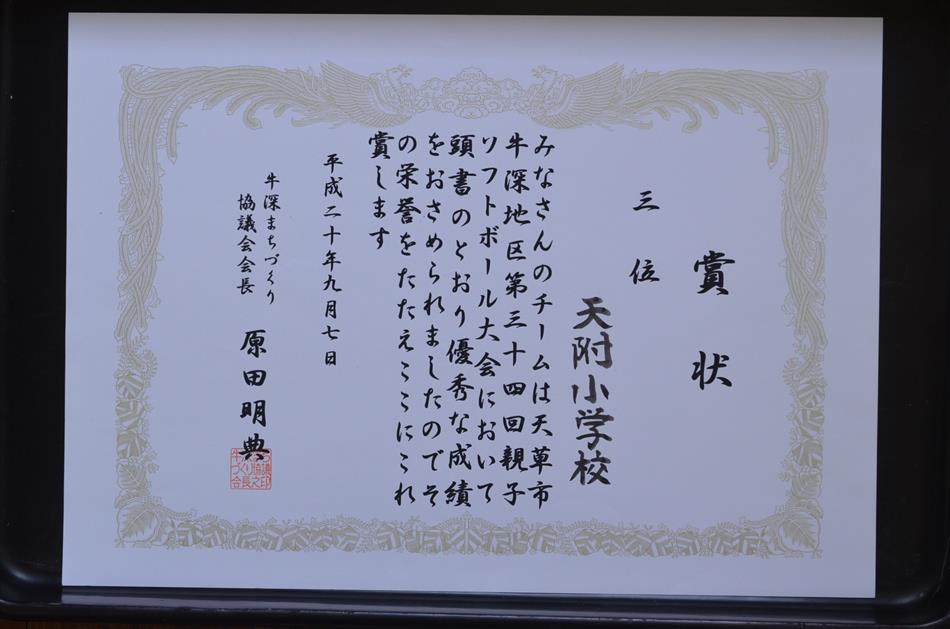 賞状
三位
天附小学校
みなさんのチームは天草市
牛深地区第三十四回親子
ソフトボール大会において
頭書のとおり優秀な成績
をおさめられましたのでそ
の栄誉をたたえここにこれ
賞します
平成二十年九月七日
牛深まちづくり
協議会会長
原田明典